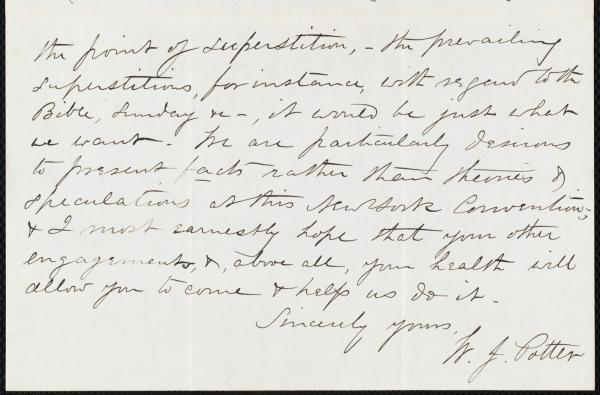 the point of superstition, – the prevailing
superstitions, for instance, with regard to the
Bible, Sunday &c –, it would be just what
we want. We are particularly desirous
to present facts rather than theories &
speculations at this New York Convention;
& I most earnestly hope that your other
engagements, &, above all, your health will
allow you to come & help us do it.
Sincerely yours,
W. J. Potter